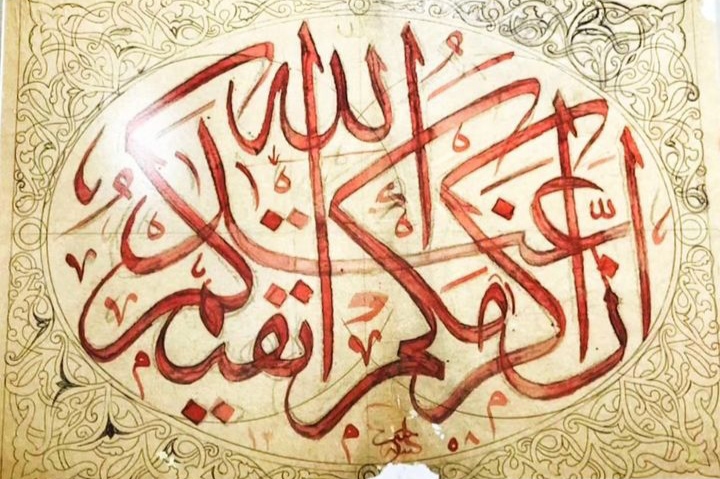 إن أكرمكم عند الله اتقيكم